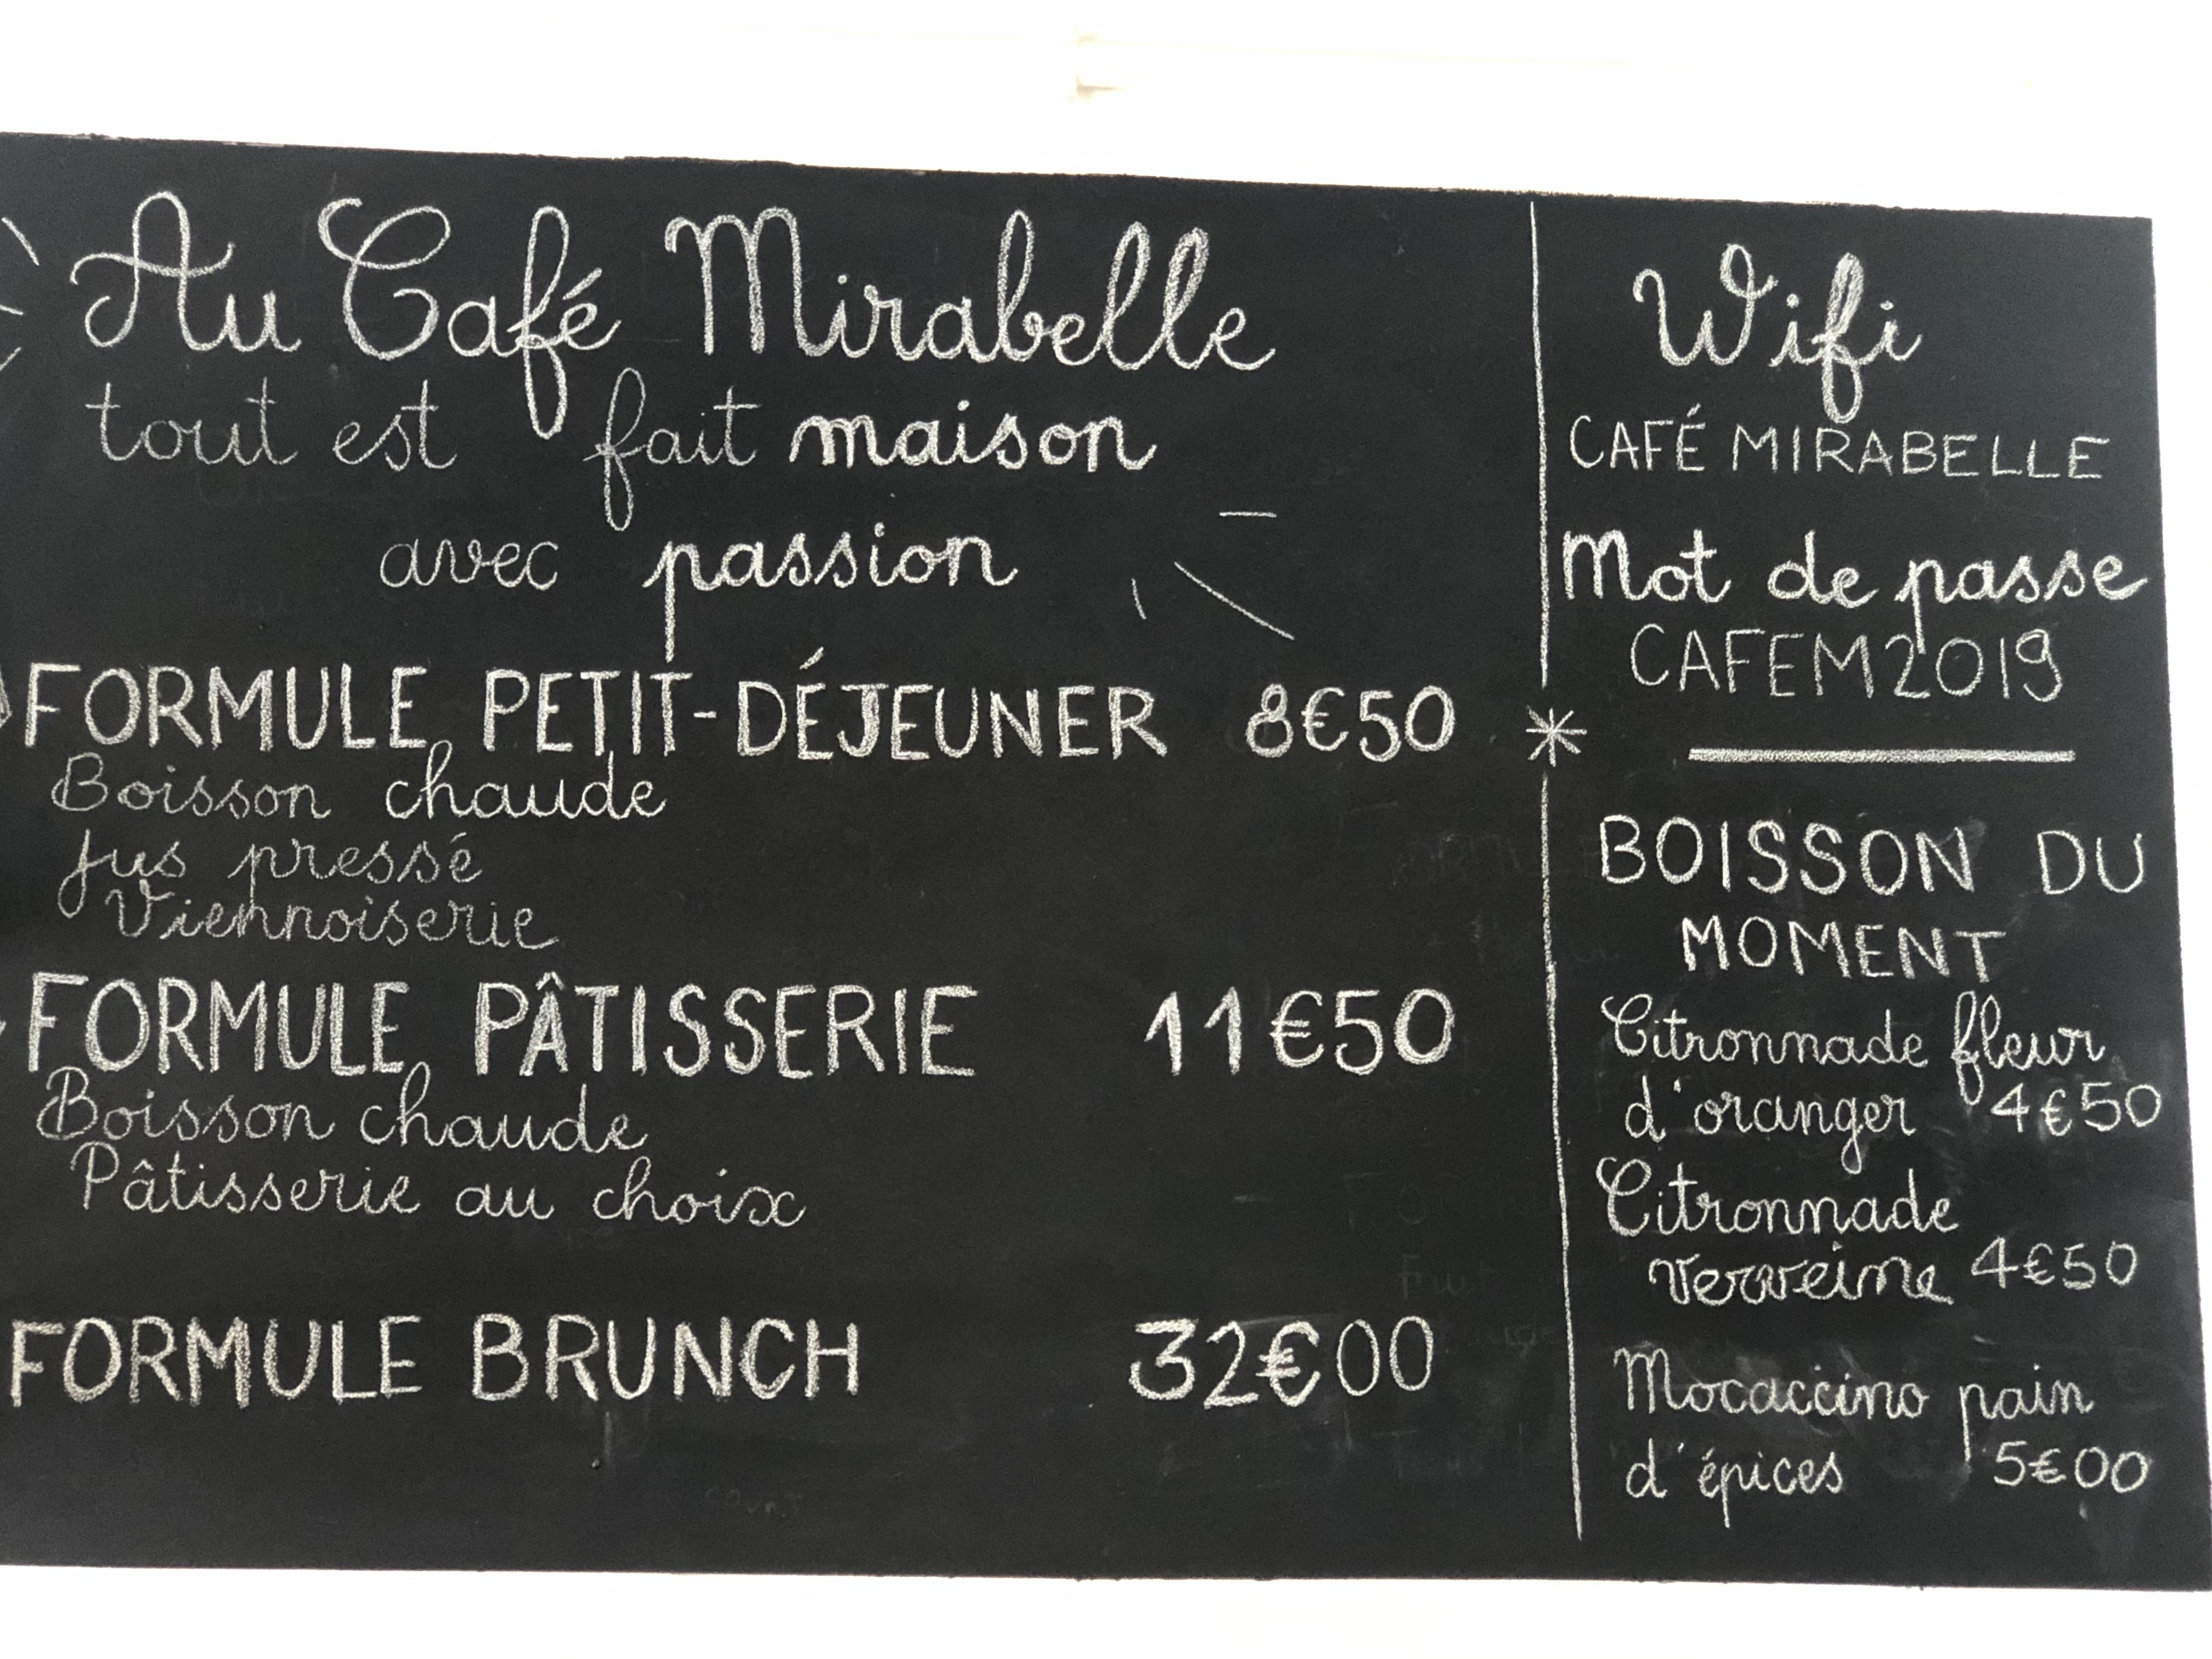 Au Café Mirabelle
tout est fait maison
avec passion
FORMULE PETIT-DÉJEUNER 8€50
Boisson chaude
Jus pressé
Viennoiserie
FORMULE PÂTISSERIE 11€50
Boisson chaude
Pâtisserie au choix
FORMULE BRUNCH 32€00
Wifi
CAFÉ MIRABELLE
Mot de passe
CAFEM2019
BOISSON DU
MOMENT
Citronnade fleur
d'oranger 4€50
Citronnade
verveine 4€50
Mocaccino pain
d'épices 5€00